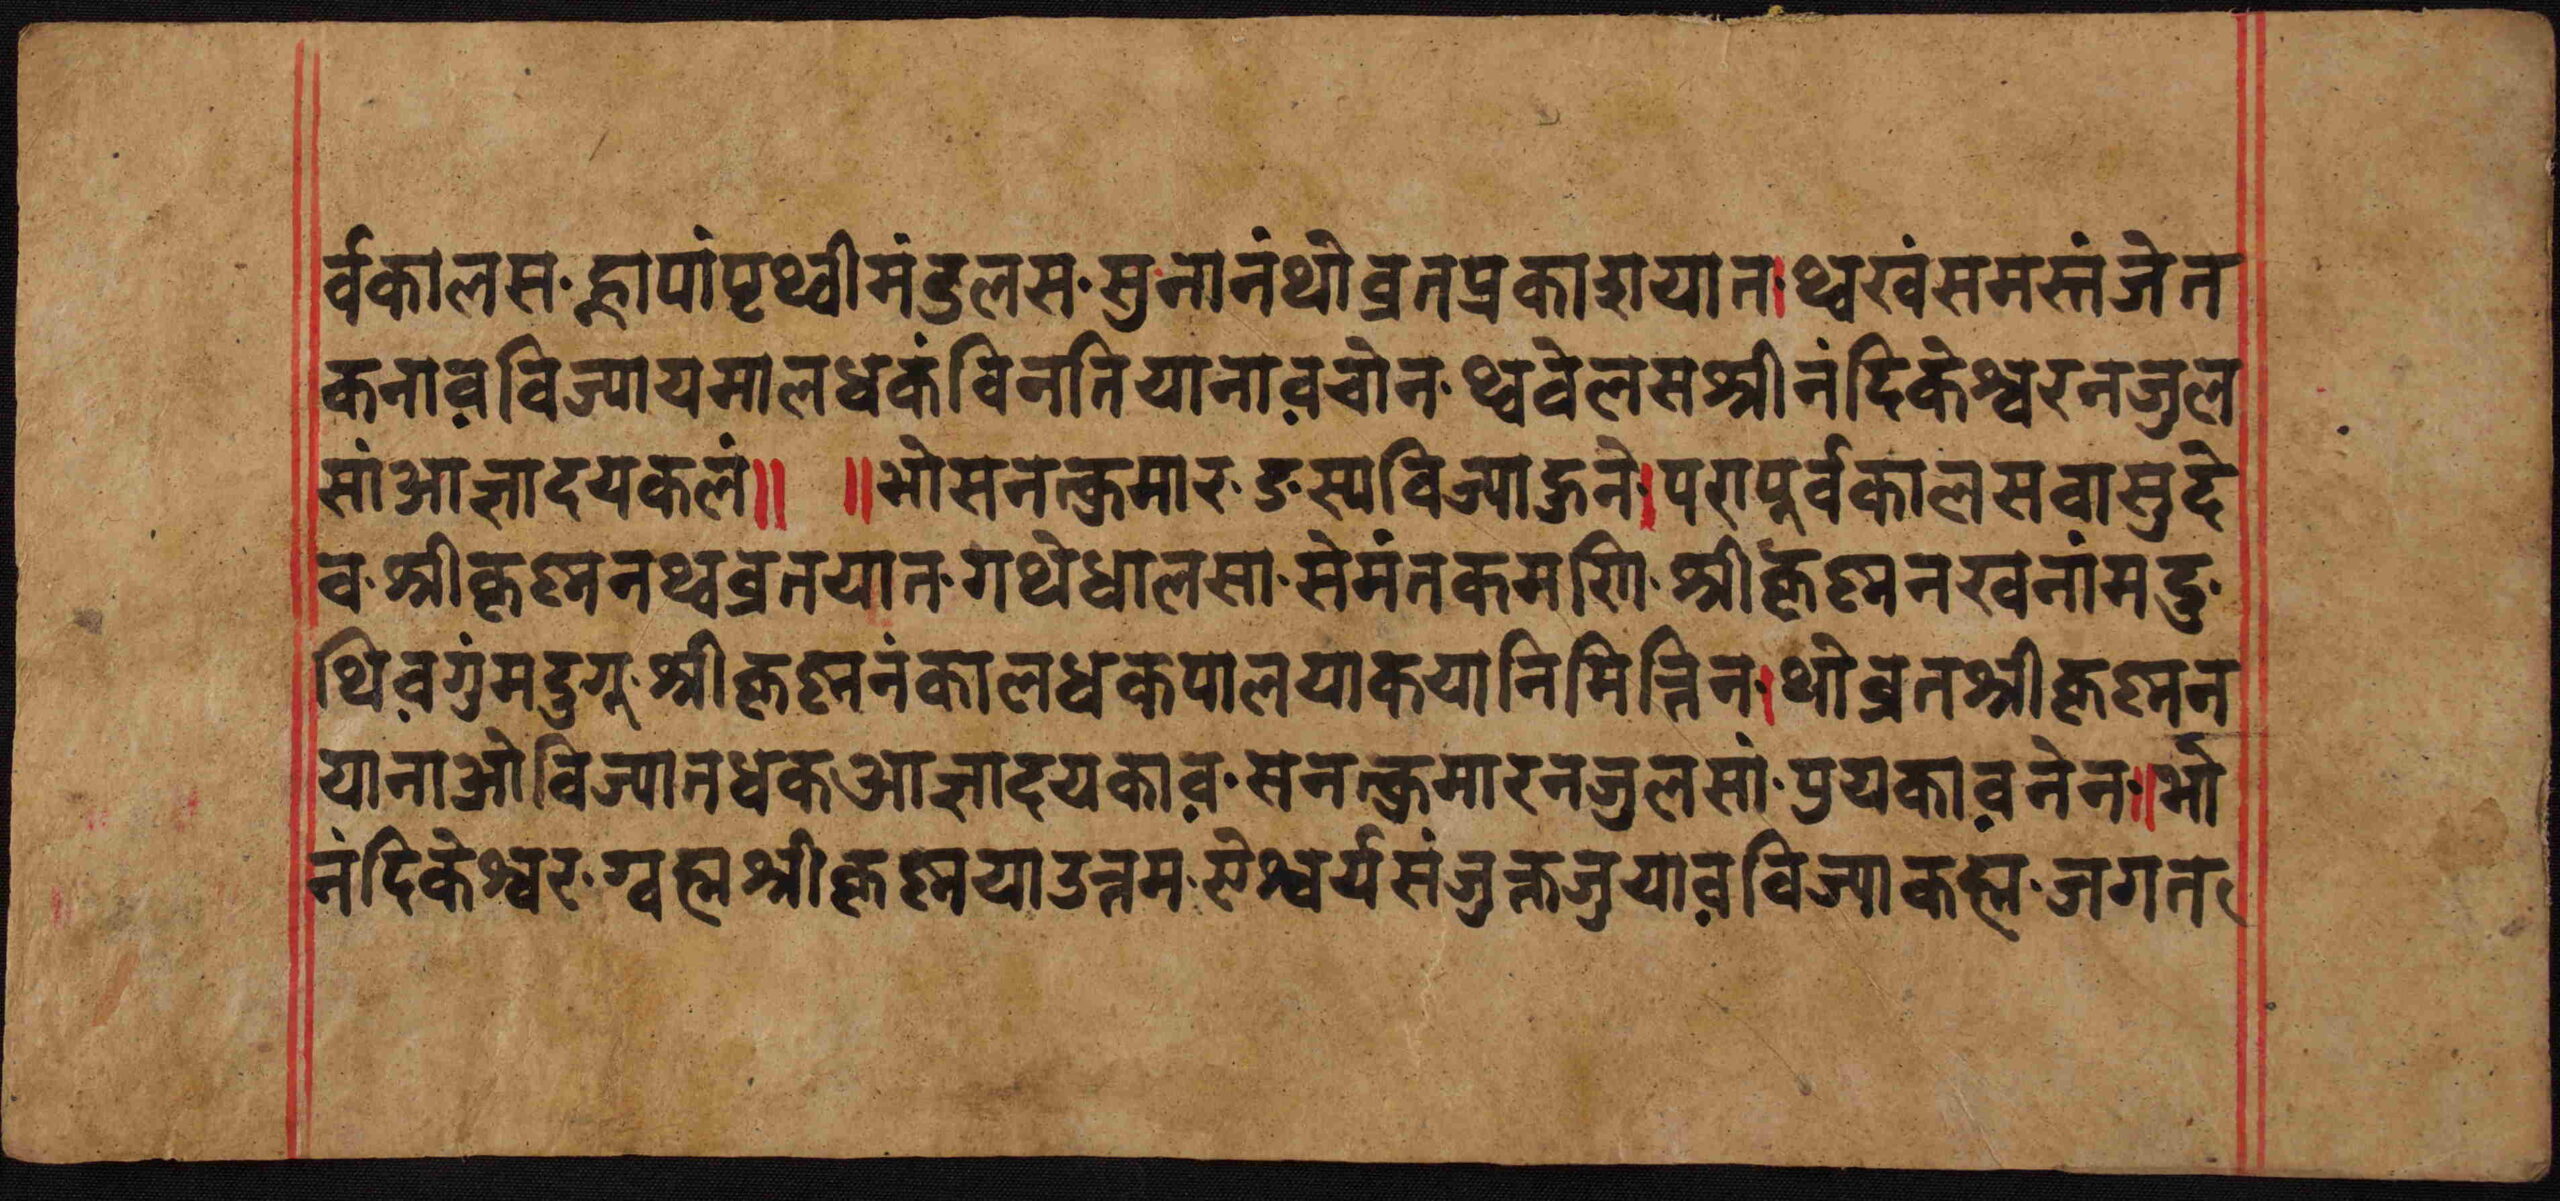 र्वकालस· ह्नापांपृथ्वीमंडुलस· सुनानंथोव्रतप्रकाशयात। थ्वखंसमस्तंजेत
कनाव़विज्यायमालधकंविनतियानाव़चोन· थ्ववेलसश्रीनंदिकेश्वरनजुल
सां‌आज्ञादयकलं॥ ॥भोसनत्कुमार· ङस्यविज्याहुने। परापूर्वकालसवासुदे
व· श्रीकृष्णनथ्वव्रतयात· गथेधालसा· सेमंतकमणि· श्रीकृष्णनखनांमदु·
थिव़गुंमदुगू· श्रीकृष्णनंकालधकपालयाकयानिमित्तिन। थोव्रतश्रीकृष्णन
यानाओविज्यातधकआज्ञादयकाव़· सनत्कुमारनजुलसां· प्रयकाव़नेन॥भो
नंदिकेश्वर· ग्वह्मश्रीकृष्णयाउत्तम· ऐश्वर्यसंजुक्तजुयाव़विज्याकह्म· जगत्